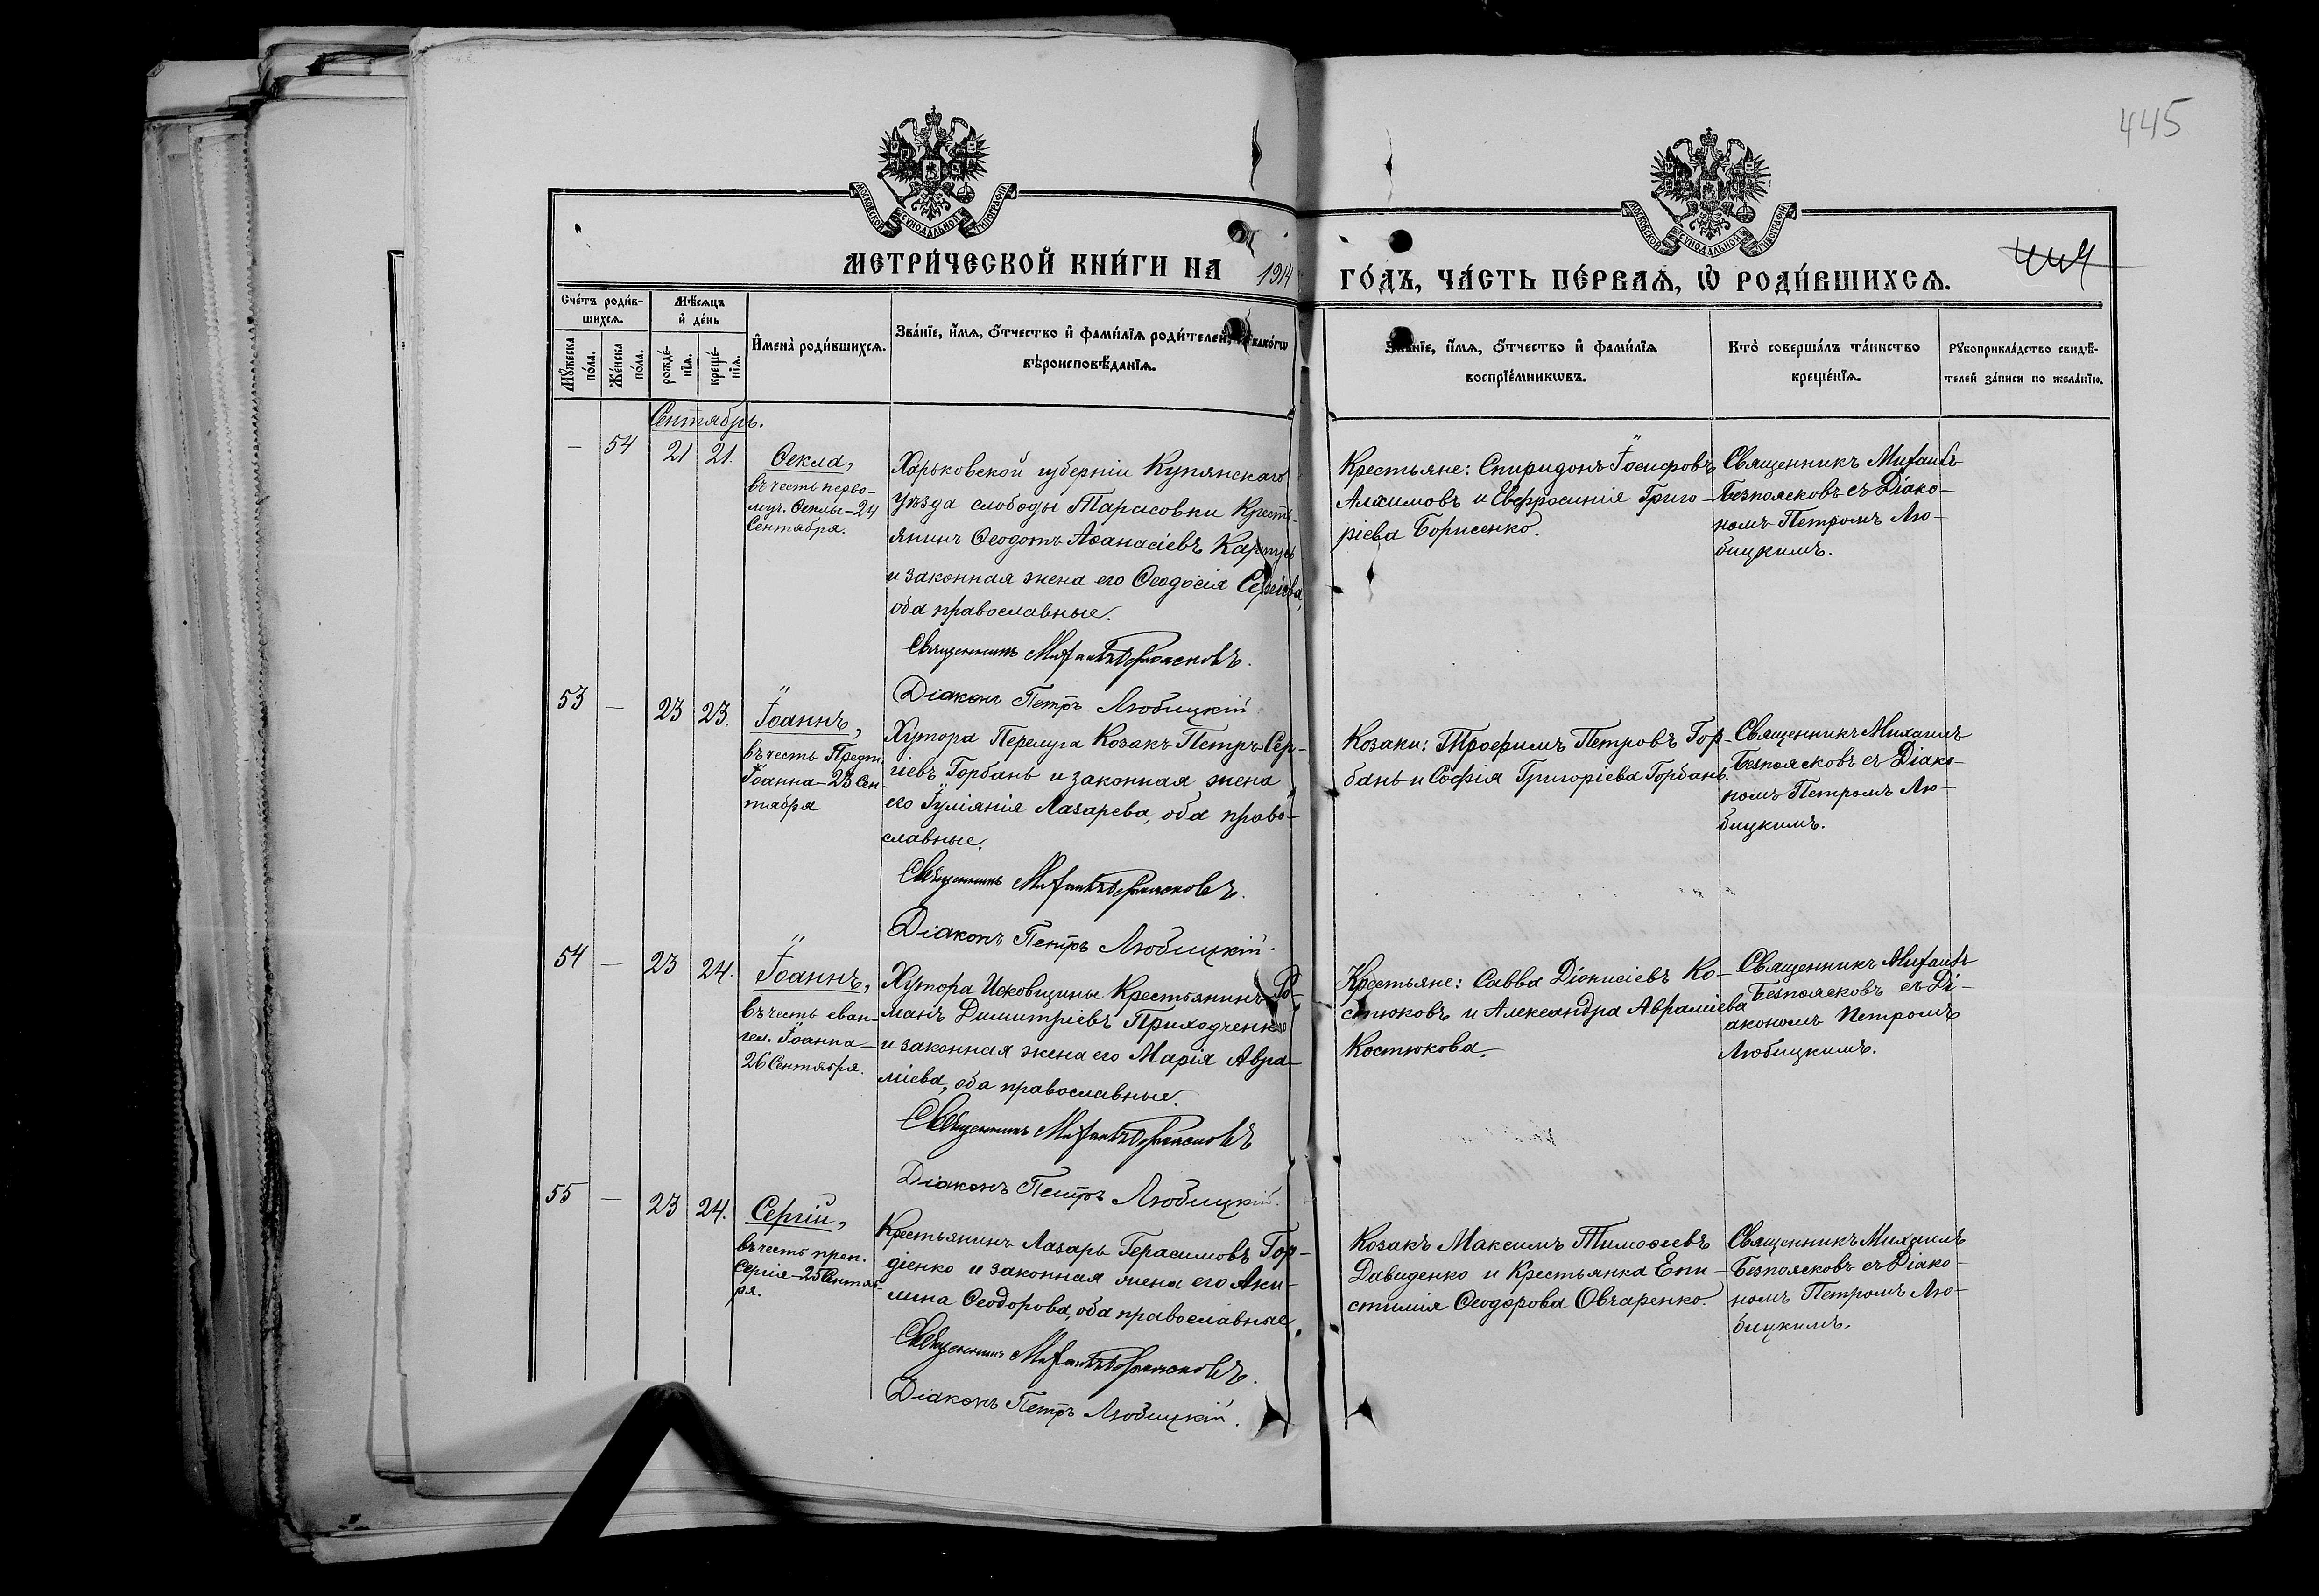 445
МОСКОВСКОЙ СУНОДАЛЬНОЙ ТИПОГРАФІИ
МОСКОВСКОЙ СУНОДАЛЬНОЙ ТИПОГРАФІИ
МЕТРИ́ЧЕСКОЙ КНИ́ГИ НА 1914
ГО́ДЪ, ЧА́СТЬ ПЕ́РВАѦ, Ѽ РОДИ́ВШИХСѦ.
Сче́тъ роди́в-
шихсѧ.
Мꙋ́жеска
по́ла.
Же́нска
по́ла.
Мѣ́сѧцъ
и҆ де́нь
рожде́-
нїѧ.
креще́-
нїѧ.
И҆мена̀ роди́вшихсѧ.
Зва́нїе, и҆́мѧ, ѻ҆́тчество и҆ фами́лїѧ роди́телей,
вѣроисповѣ́данїѧ.
Зва́нїе, и҆́мѧ, ѻ҆́тчество и҆ фами́лїѧ
воспрїе́мникѡвъ.
Кто̀ соверша́лъ та́инство
креще́нїѧ.
Рꙋкоприкла́дство свидѣ́-
телей за́писи по жела́нїю.
Сентябрь.
— 54 21 21.
Ѳекла,
въ честь перво-
муч. Ѳеклы – 24
Сентября.
Харьковской губерніи Купянскаго
уѣзда слободы Тарасовки Кресть-
янинъ Ѳеодотъ Аѳанасіевъ
и законная жена его Ѳеодосія Сергіева,
оба православные.
Священникъ Михаилъ Безпоясковъ.
Діаконъ Петръ Любицкій
Крестьяне: Спиридонъ Іосифовъ
Алхимовъ и Евфросинія Григо-
ріева Борисенко.
Священникъ Михаилъ
Безпоясковъ съ Діако-
номъ Петромъ Лю-
бицкимъ.
53 — 23 23.
Іоаннъ,
въ честь Предт.
Іоанна – 23 Сен-
тября
Хутора Перелуга Козакъ Петръ Сер-
гіевъ Горбань и законная жена
его Іуліанія Лазарева, оба право-
славные.
Священникъ Михаилъ Безпоясковъ.
Діаконъ Петръ Любицкій.
Козаки: Трофимъ Петровъ Гор-
бань и Софія Григоріева Горбань.
Священникъ Михаилъ
Безпоясковъ съ Діако-
номъ Петромъ Лю-
бицкимъ.
54 — 23 24.
Іоаннъ,
въ честь еван-
гел. Іоанна –
26 Сентября.
Хутора Исковщины Крестьянинъ Ро-
манъ Димитріевъ Приходченко
и законная жена его Марія Авра-
міева, оба православные.
Священникъ Михаилъ Безпоясковъ
Діаконъ Петръ Любицкій.
Крестьяне: Савва Діонисіевъ Ко-
стюковъ и Александра Авраміева
Костюкова.
Священникъ Михаилъ
Безпоясковъ съ Ді-
акономъ Петромъ
Любицкимъ.
55 — 23 24.
Сергій,
въ честь преп.
Сергія – 25 Сентяб-
ря.
Крестьянинъ Лазарь Герасимовъ Гор-
діенко и законная жена его Аки-
лина Ѳеодорова, оба православные.
Священникъ Михаилъ Безпоясковъ.
Діаконъ Петръ Любицкій.
Козакъ Максимъ Тимоѳеевъ
Давиденко и Крестьянка Епи-
стимія Ѳеодорова Овчаренко.
Священникъ Михаилъ
Безпоясковъ съ Діако-
номъ Петромъ Лю-
бицкимъ.